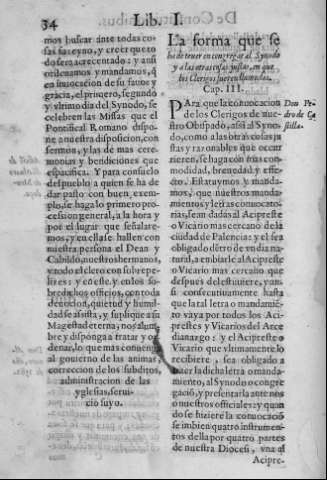 34
Lib. I.
mos buscar ante todas co-
sas su reyno, y creer que to
do sera acrecentado: y ansi
ordenamos y mandamos, q̃
en invocacion de su fauor y
gracia, el primero, segundo
y vltimo dia del Synodo, se
celebren las Missas que el
Pontifical Romano dispo-
ne a nuestra disposicion, con
sermon, y las de mas cere-
monias y bendiciones que
especifica. Y para consuelo
del pueblo a quien se ha de
dar pasto con buen exem-
plo, se haga lo primero pro-
cession general, a la hora y
por el lugar que señalare-
mos, y en ella se hallen con
nuestra persona el Dean y
Cabildo, nuestros hermanos,
y todo el clero con sobrepe-
lizes: y en este y en los so-
bredichos officios, con toda
deuocion, quietud y humil-
dad se assista, y suplique a su
Magestad eterna, nos alum-
bre y disponga a tratar y or-
denar, lo que mas conuenga
al gouierno de las animas,
correccion de los subditos,
administracion de las
yglesias, serui-
cio suyo.
La forma que se
ha de tener en congregar al Synodo
y a las otras cosas justas, en que
los Clerigos fueren llamados.
Cap. III.
Para que la conuocacion
de los Clerigos de nue-
stro Obispado, assi al Syno-
do, como a las otras cosas ju
stas y razonables que occur
rieren, se haga con mas com-
modidad, breuedad y effe-
cto. Estatuymos y manda-
mos, que nuestros manda-
mientos y letras conuocato-
rias, sean dadas al Acipreste
o Vicario mas cercano de la
ciudad de Palencia: y el sea
obligado dẽtro de vn dia na-
tural, a embiarle al Acipreste
o Vicario mas cercano que
despues del estuuiere, y an-
si consecutiuamente hasta
que la tal letra o mandamiẽ
to vaya por todos los Aci-
prestes y Vicarios del Arce
dianazgo: y el Acipreste o
Vicario que vltimamente lo
recibiere, sea obligado a
traer la dicha letra o manda-
miento, al Synodo o congre-
gacion, y presentarla ante nos
o nuestros officiales: y quan
do se hiziere la conuocaciõ
se imbien quatro instrumen-
tos della por quatro partes
de nuestra Diocesi, vna al
Acipre-
Don Pe-
dro de Ca
stilla.